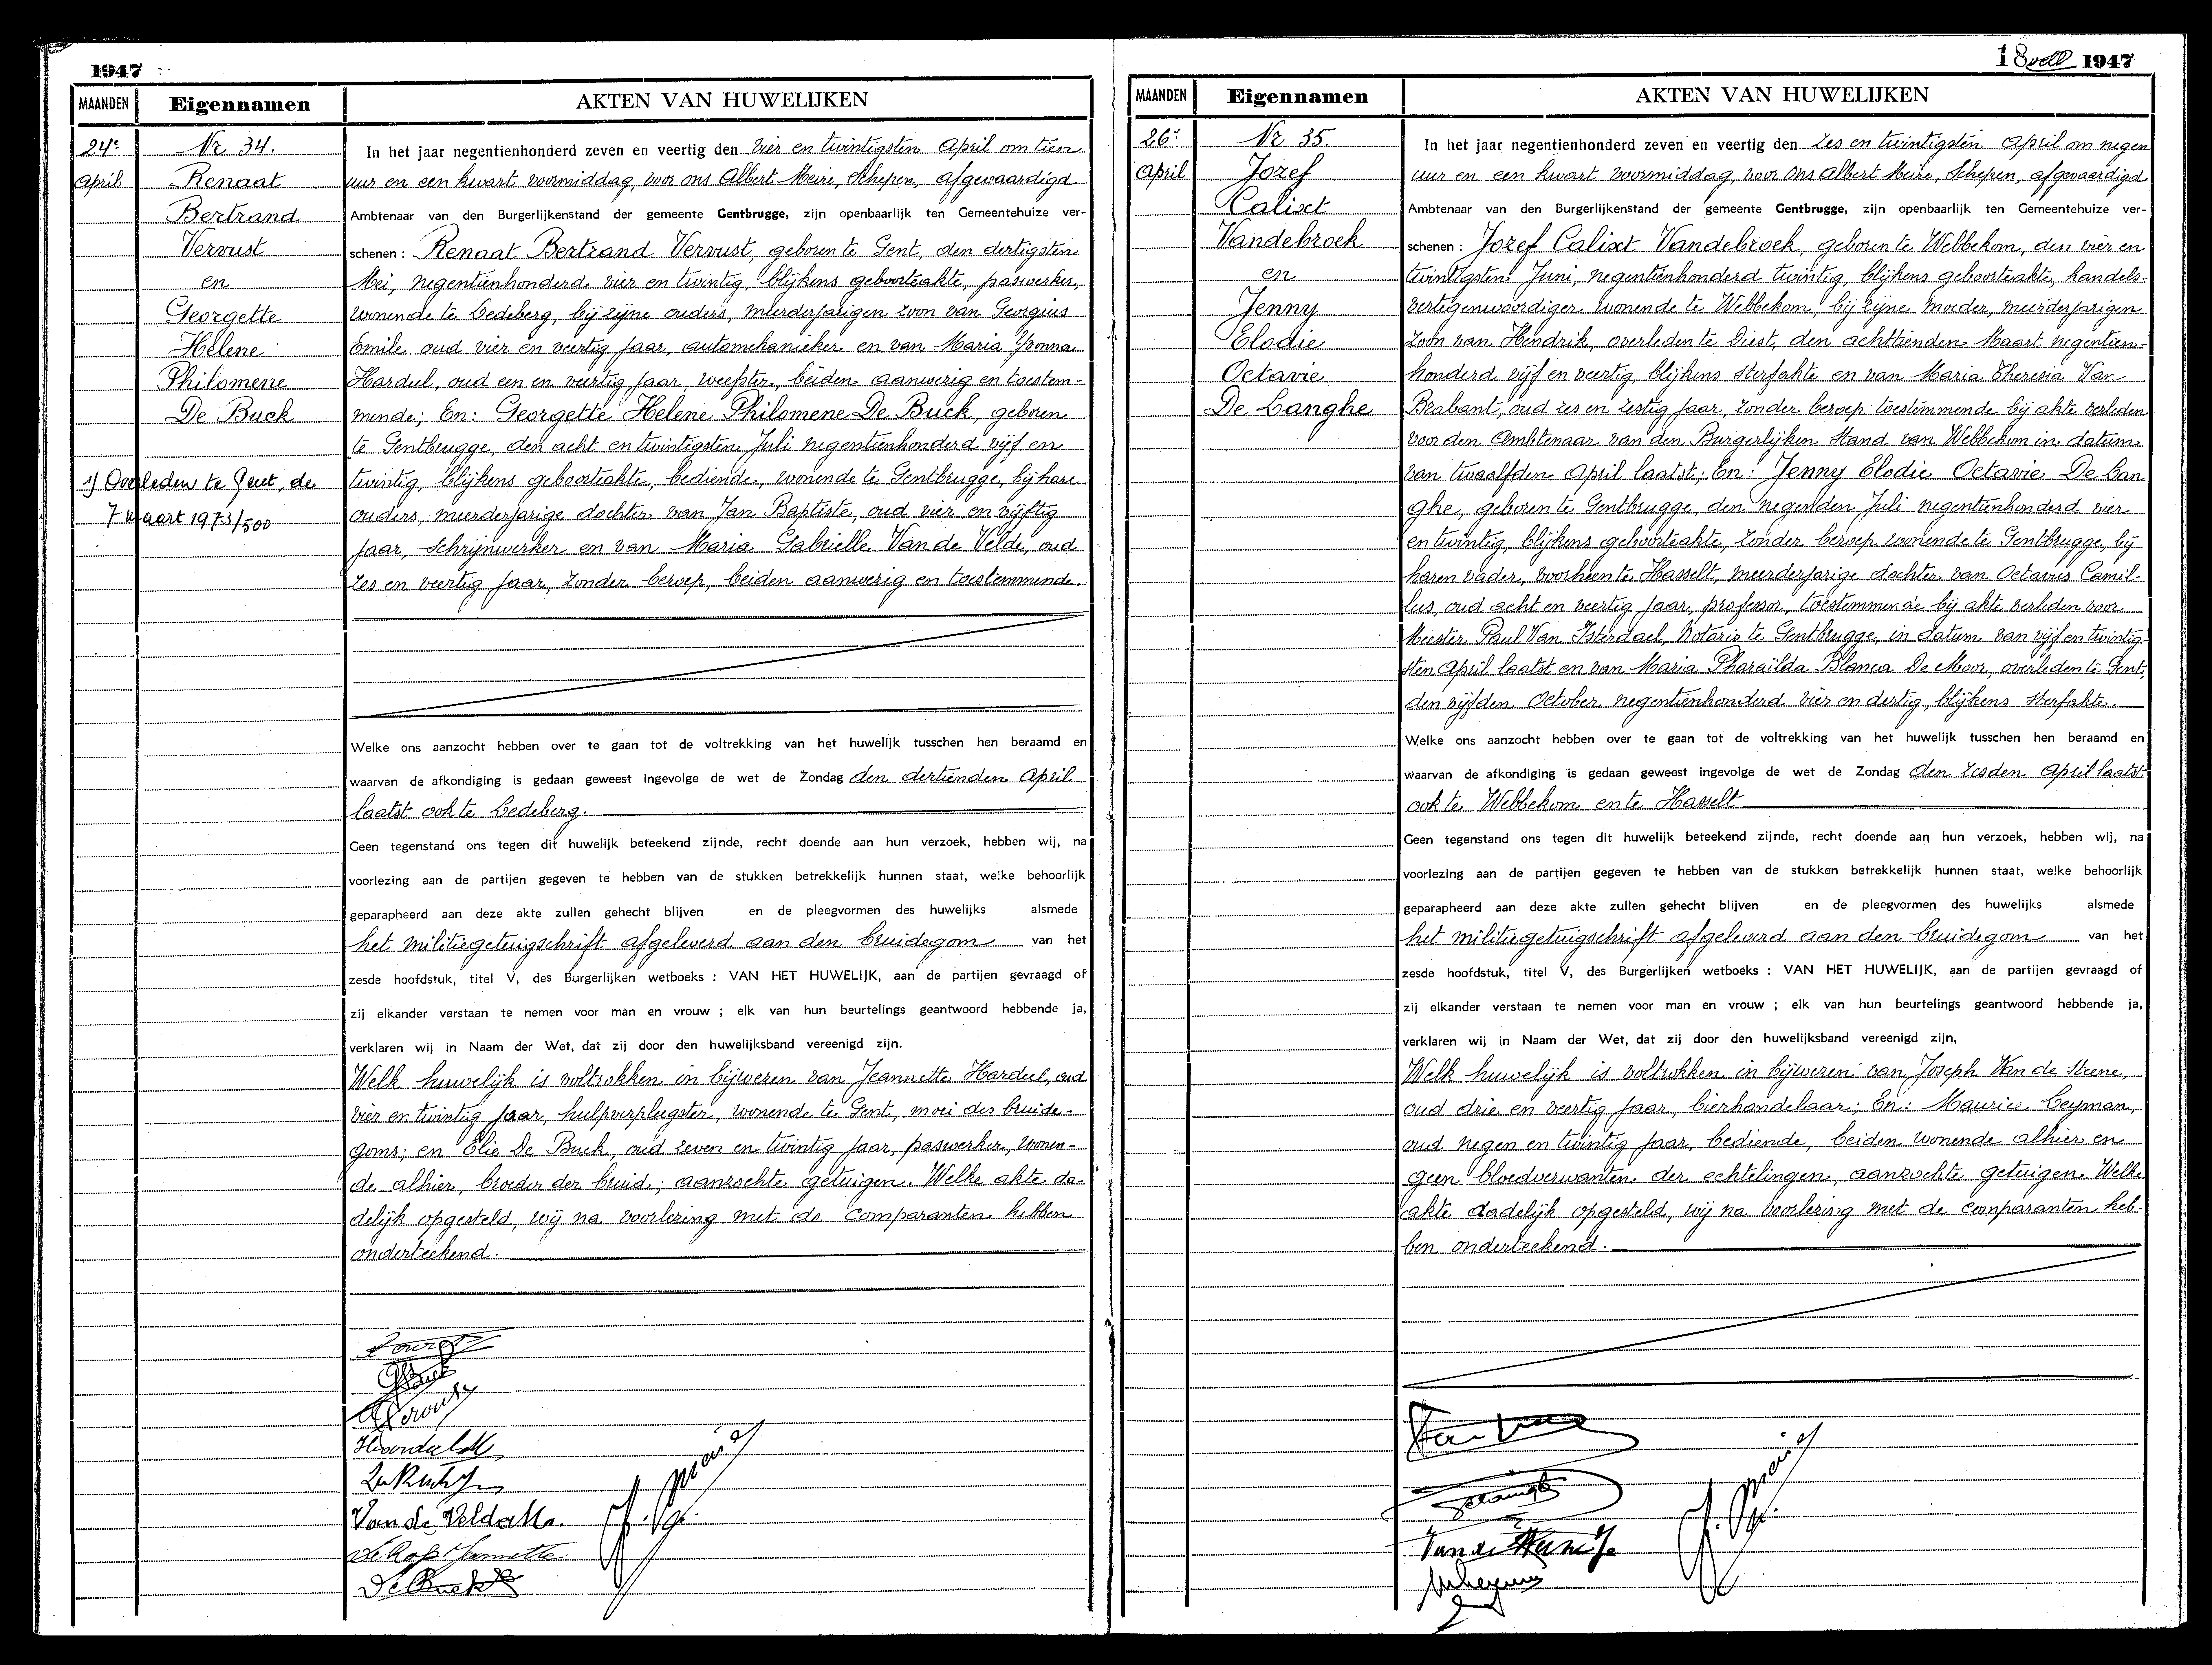 1947
MAANDEN
Eigennamen
AKTEN VAN HUWELIJKEN
24e
April
Nr 34.
Renaat
Bertrand
Vervust
en
Georgette
Helene
Philomene
De Buck
1) Overleden te Gent, de
7 maart 1973/500
In het jaar negentienhonderd zeven en veertig den vier en twintigsten April om tien
uur en een kwart voormiddag, voor ons Albert Meire, Schepen, afgevaardigd
Ambtenaar van den Burgerlijkenstand der gemeente Gentbrugge, zijn openbaarlijk ten Gemeentehuize ver-
schenen : Renaat Bertrand Vervust, geboren te Gent, den dertigsten
Mei, negentienhonderd vier en twintig, blijkens geboorteakte, paswerker,
wonende te Ledeberg, bij zijne ouders, meerderjarigen zoon van Georgius
Emile oud vier en veertig jaar, automekanieker en van Maria Yvonna
Hardeel, oud een en veertig jaar, weefster, beiden aanwezig en toestem-
mende; En: Georgette Helene Philomene De Buck, geboren
te Gentbrugge, den acht en twintigsten Juli negentienhonderd vijf en
twintig, blijkens geboorteakte, bediende, wonende te Gentbrugge, bij hare
ouders, meerderjarige dochter van Jan Baptiste, oud vier en vijftig
jaar, schrijnwerker en van Maria Gabrielle Van de Velde, oud
zes en veertig jaar, zonder beroep, beiden aanwezig en toestemmende.
Welke ons aanzocht hebben over te gaan tot de voltrekking van het huwelijk tusschen hen beraamd en
waarvan de afkondiging is gedaan geweest ingevolge de wet de Zondag den dertienden April
laatst ook te Ledeberg.
Geen tegenstand ons tegen dit huwelijk beteekend zijnde, recht doende aan hun verzoek, hebben wij, na
voorlezing aan de partijen gegeven te hebben van de stukken betrekkelijk hunnen staat, welke behoorlijk
geparapheerd aan deze akte zullen gehecht blijven en de pleegvormen des huwelijks alsmede
het militiegetuigschrift afgeleverd aan den bruidegom van het
zesde hoofdstuk, titel V, des Burgerlijken wetboeks : VAN HET HUWELIJK, aan de partijen gevraagd of
zij elkander verstaan te nemen voor man en vrouw ; elk van hun beurtelings geantwoord hebbende ja,
verklaren wij in Naam der Wet, dat zij door den huwelijksband vereenigd zijn.
Welk huwelijk is voltrokken in bijwezen van Jeannette Hardeel, oud
vier en twintig jaar, hulpverpleegster, wonende te Gent, moei des bruide-
goms; en Elie De Buck, oud zeven en twintig jaar, paswerker, wonen-
de alhier, broeder der bruid; aanzochte getuigen. Welke akte da-
delijk opgesteld, wij na voorlezing met de comparanten hebben
onderteekend.
Van de Velde M.
De Buck
18 1947
MAANDEN
Eigennamen
AKTEN VAN HUWELIJKEN
26e
April
Nr 35.
Jozef
Calixt
Vandebroek
en
Jenny
Elodie
Octavie
De Langhe
In het jaar negentienhonderd zeven en veertig den zes en twintigsten April om negen
uur en een kwart voormiddag, voor ons Albert Meire, Schepen, afgevaardigd
Ambtenaar van den Burgerlijkenstand der gemeente Gentbrugge, zijn openbaarlijk ten Gemeentehuize ver-
schenen : Jozef Calixt Vandebroek, geboren te Webbekom, den vier en
twintigsten Juni, negentienhonderd twintig, blijkens geboorteakte, handels-
vertegenwoordiger wonende te Webbekom, bij zijne moeder, meerderjarigen
zoon van Hendrik, overleden te Diest, den achttienden Maart negentien-
honderd vijf en veertig, blijkens sterfakte en van Maria Theresia Van
Brabant, oud zes en zestig jaar, zonder beroep toestemmende bij akte verleden
voor den Ambtenaar van den Burgerlijken Stand van Webbekom in datum
van twaalfden April laatst; En: Jenny Elodie Octavie De Lan
ghe, geboren te Gentbrugge, den negenden Juli negentienhonderd vier
en twintig, blijkens geboorteakte, zonder beroep wonende te Gentbrugge, bij
haren vader, voorheen te Hasselt, meerderjarige dochter van Octavus Camil-
lus, oud acht en veertig jaar, professor, toestemmende bij akte verleden voor
Meester Paul Van Isterdael, Notaris te Gentbrugge, in datum van vijf en twintig-
sten April laatst en van Maria Pharaïlda Blanca De Moor, overleden te Gent,
den vijfden October negentienhonderd vier en dertig, blijkens sterfakte.
Welke ons aanzocht hebben over te gaan tot de voltrekking van het huwelijk tusschen hen beraamd en
waarvan de afkondiging is gedaan geweest ingevolge de wet de Zondag den zesden April laatst
ook te Webbekom en te Hasselt
Geen tegenstand ons tegen dit huwelijk beteekend zijnde, recht doende aan hun verzoek, hebben wij, na
voorlezing aan de partijen gegeven te hebben van de stukken betrekkelijk hunnen staat, welke behoorlijk
geparapheerd aan deze akte zullen gehecht blijven en de pleegvormen des huwelijks alsmede
het militiegetuigschrift afgeleverd aan den bruidegom van het
zesde hoofdstuk, titel V, des Burgerlijken wetboeks : VAN HET HUWELIJK, aan de partijen gevraagd of
zij elkander verstaan te nemen voor man en vrouw ; elk van hun beurtelings geantwoord hebbende ja,
verklaren wij in Naam der Wet, dat zij door den huwelijksband vereenigd zijn.
Welk huwelijk is voltrokken in bijwezen van Joseph Van de Steene,
oud drie en veertig jaar, bierhandelaar; En: Maurice Leyman,
oud negen en twintig jaar, bediende, beiden wonende alhier en
geen bloedverwanten der echtelingen, aanzochte getuigen. Welke
akte dadelijk opgesteld, wij na voorlezing met de comparanten heb-
ben onderteekend.